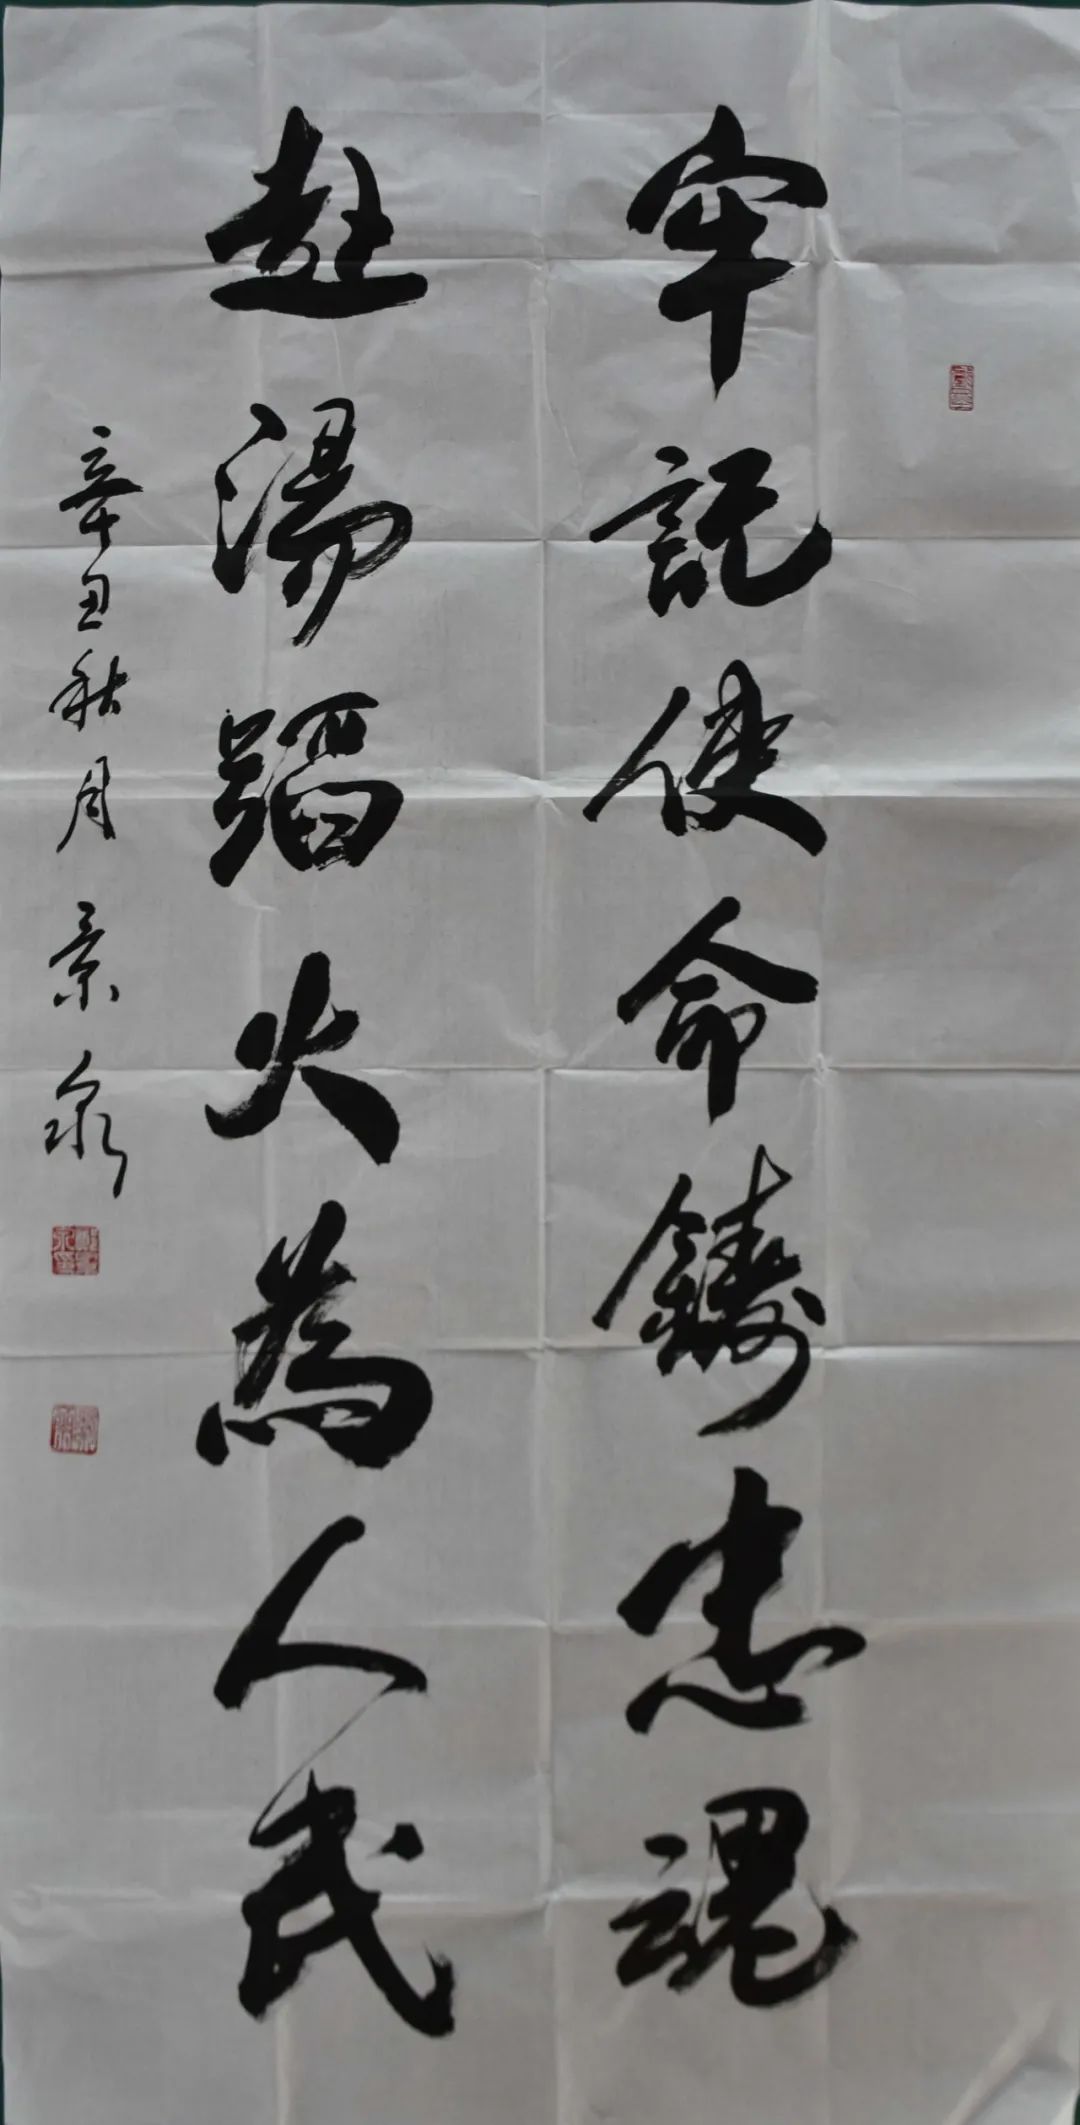 牢記使命鑄忠魂
赴湯蹈火為人民
辛丑秋月景泉